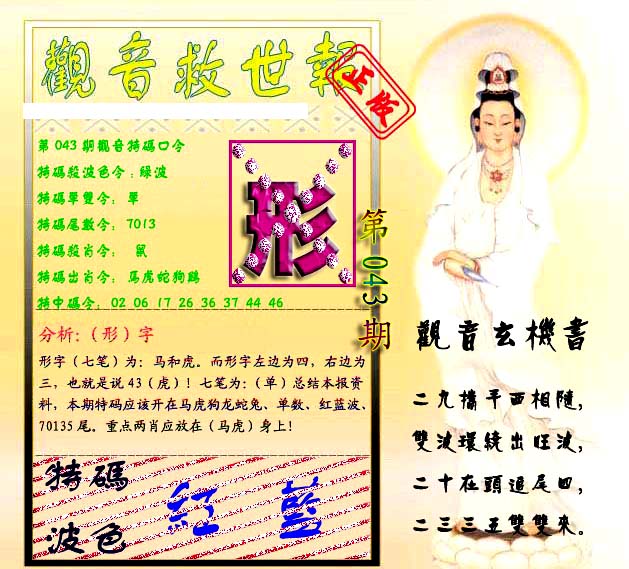 觀音救世報
正版
第043期觀音特碼口令
特碼殺波色令:綠波
特碼單雙令: 單
特碼尾數令: 7013
特碼殺肖令: 鼠
特碼出肖令: 馬虎蛇狗鷄
特中碼令: 02 06 17 26 36 37 44 46
形
第043期
分析:(形)字
形字(七笔)为:马和虎。而形字左边为四,右边为
三,也就是说43(虎)!七笔为:(单)总结本报资
料,本期特码应该开在马虎狗龙蛇兔、单数、红蓝波、
70135尾。重点两肖应放在(马虎)身上!
特碼
波色
紅 藍
觀音玄機書
二九擋平西相隨,
雙波環繞出旺波,
二十在頭追尾四,
二三三五雙雙來。